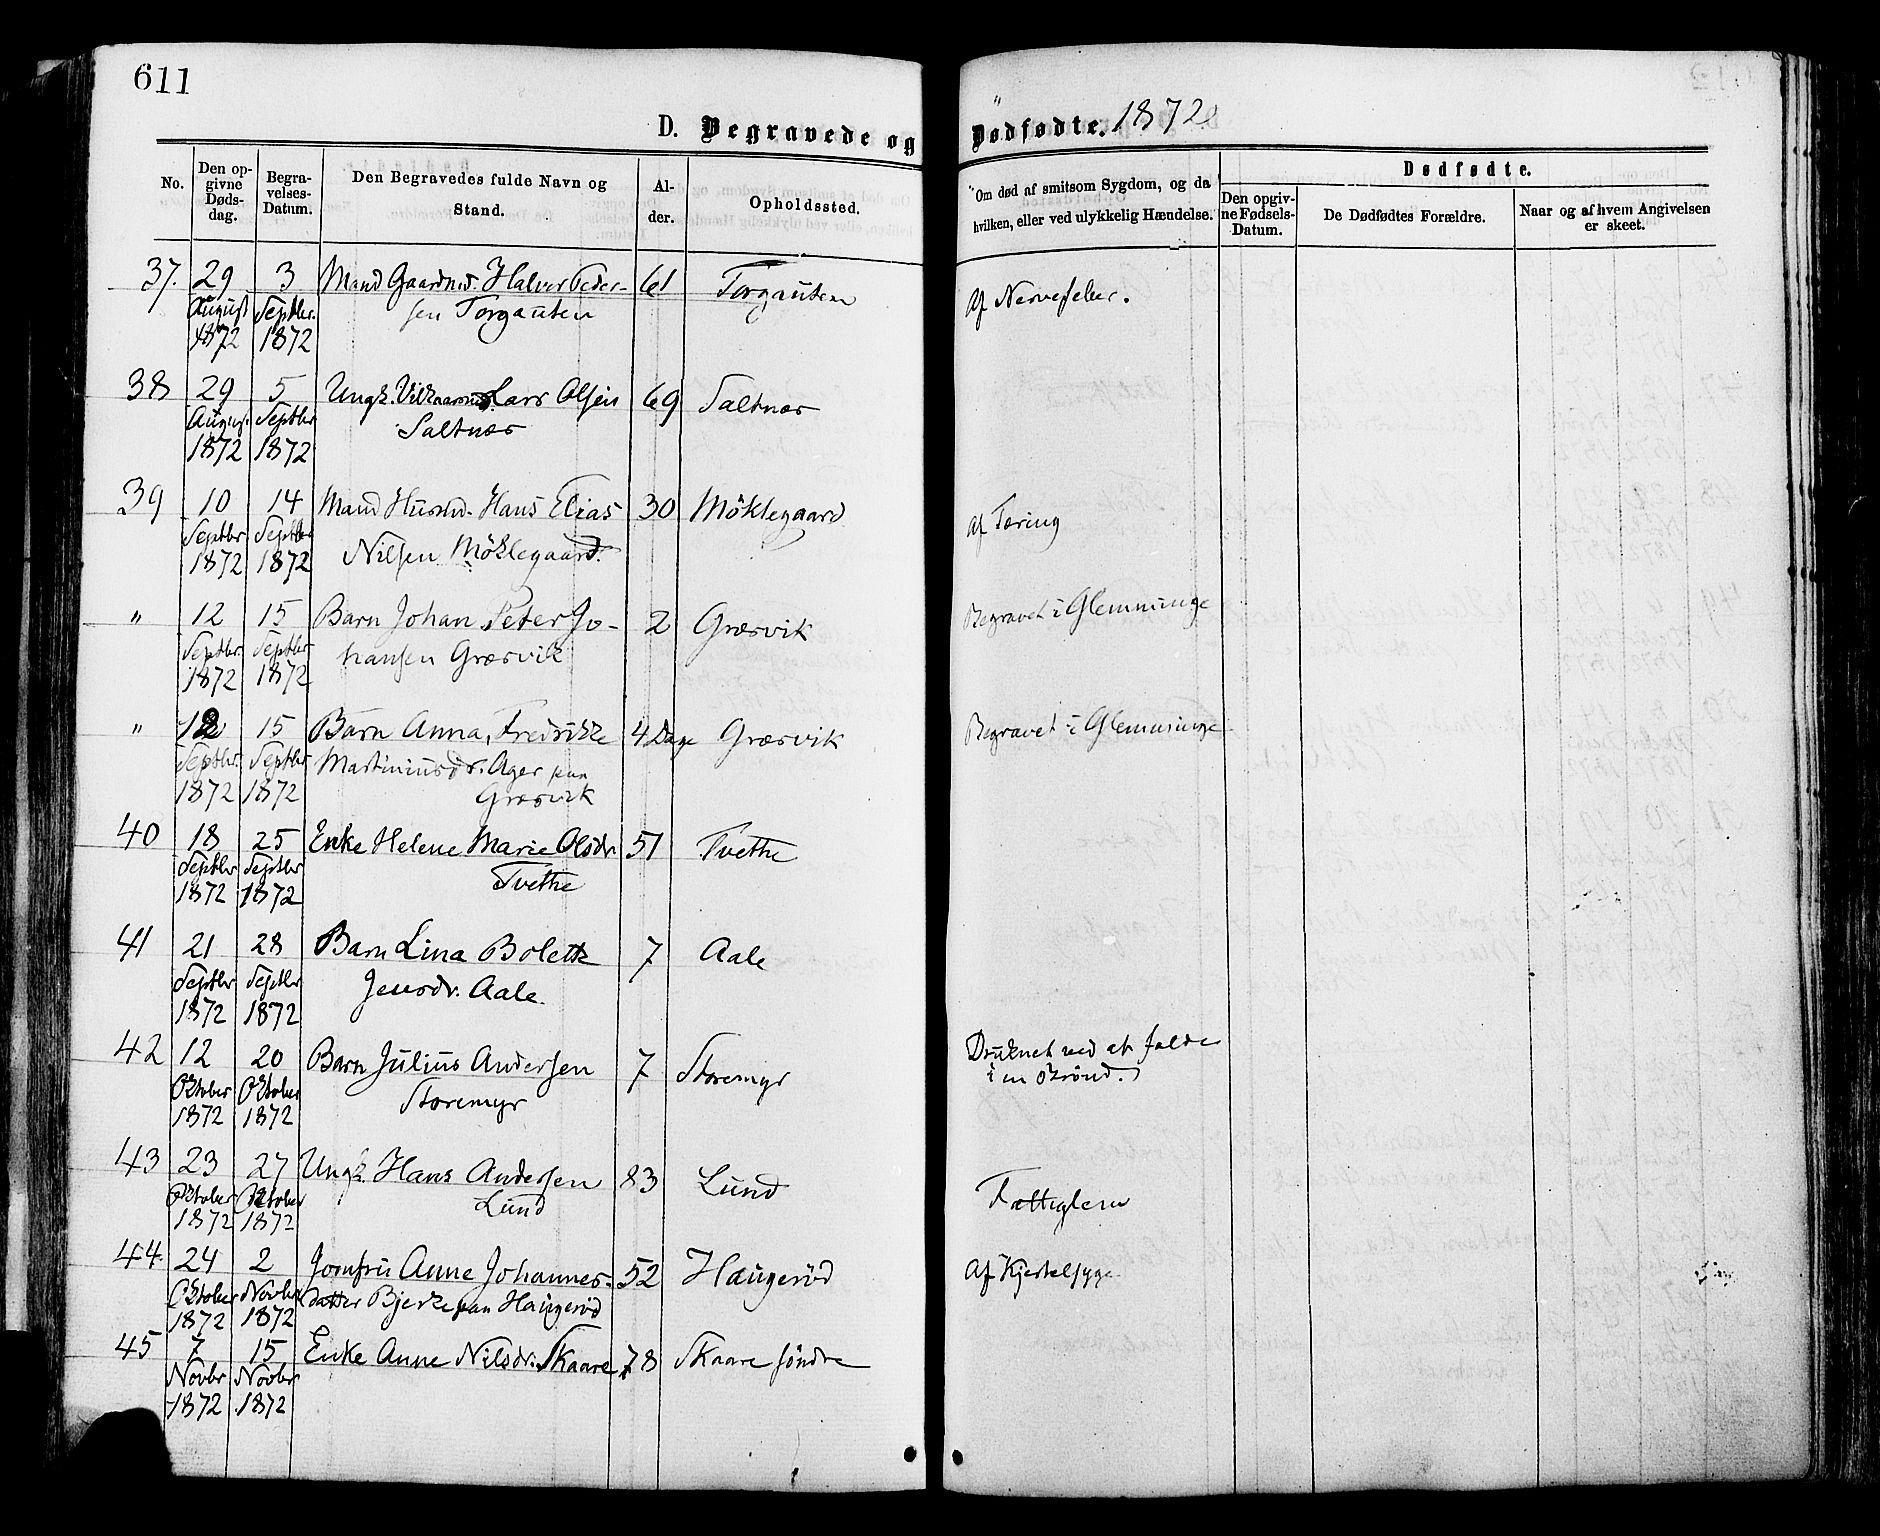 611
D. Begravede og Dødfødte. 1872
No.
Den opgivne Dødsdag.
Begravelses-Datum.
Den Begravedes fulde Navn og Stand.
Alder.
Opholdssted.
Om død af smitsom Sygdom, og da hvilken, eller ved ulykkelig Hændelse.
Dødfødte.
Den opgivne Fødsels-Datum.
De Dødfødtes Forældre.
Naar og af hvem Angivelsen er skeet.
37. 29 3 Mand Gaardmd. Halvor Peder- 61 Torgauten Af Nervefeber.
August Septbr. sen Torgauten
1872 1872
38 29 5 Ungk. Vilkaarsmd. Lars Olsen 69 Saltnæs
August Septbr Saltnæs
1872 1872
39 10 14 Mand Husmd. Hans Elias 30 Möklegaard Af Tæring
Septbr Septbr Nilsen Möklegaard.
1872 1872
" 12 15 Barn Johan Peter Jo- 2 Græsvik Begravet i Glemminge
Septbr Septbr hansen Græsvik
1872 1872
" 12 15 Barn Anna Fredrikke 4 Dage Græsvik Begravet i Glemminge
Septbr. Septbr Martiniusdr. Ager paa
1872 1872 Græsvik
40 18 25 Enke Helene Marie Olsdr. 51 Tvethe
Septbr Septbr Tvethe
1872 1872
41 21 28 Barn Lina Bolette 7 Aale
Septbr Septbr Jensdr. Aale.
1872 1872
42 12 20 Barn Julius Andersen 7 Storemyr Druknet ved at falde
Oktober Oktober Storemyr i en Brönd.
1872 1872
43 23 27 Ungk. Hans Andersen 83 Lund Fattiglem
Oktober Oktober Lund
1872 1872
44. 24 2 Jomfru Anne Johannes- 52 Haugeröd Af Kjertelsyge
Oktober Novbr datter Bjerke paa Haugeröd
1872 1872
45 7 15 Enke Anne Nilsdr. Skaare 78 Skaare söndre
Novbr Novbr
1872 1872